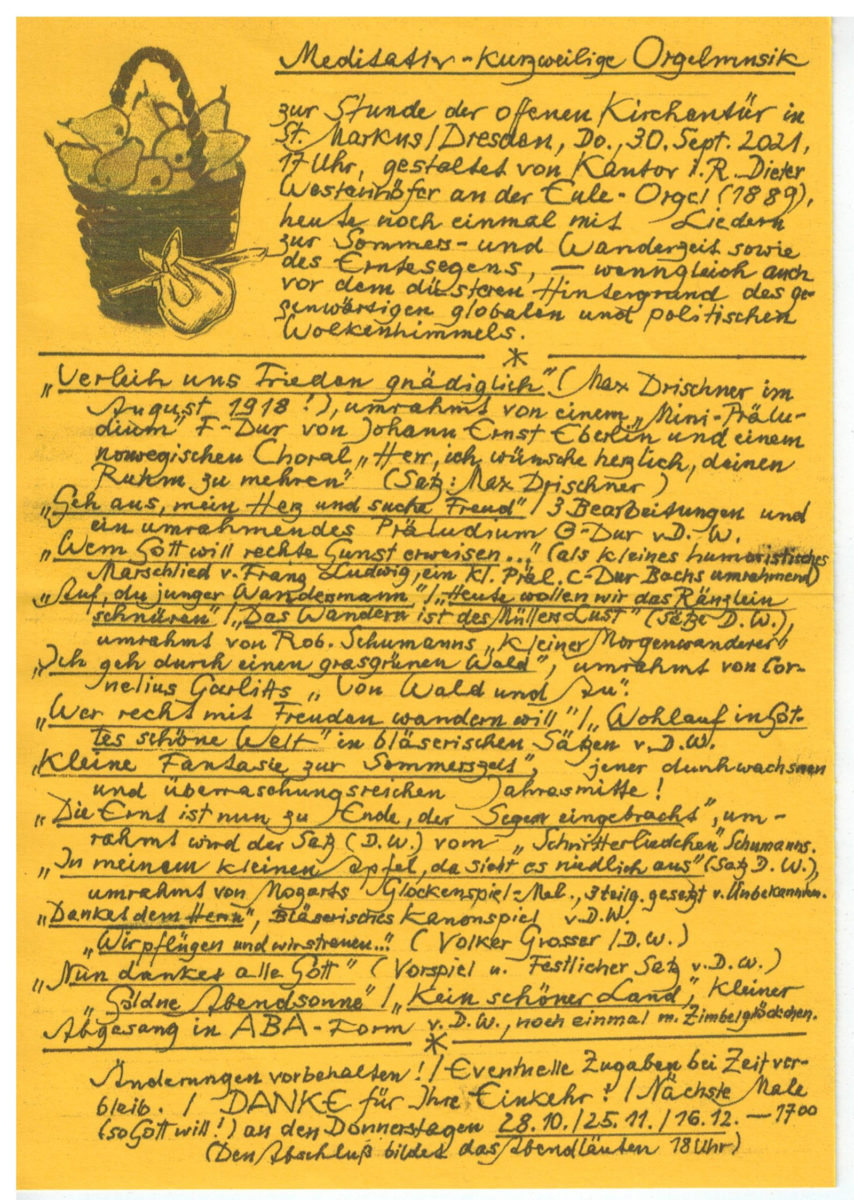 Meditativ-kurzweilige Orgelmusik
zur Stunde der offenen Kirchentür in
St. Markus/Dresden, Do., 30. Sept. 2021,
17 Uhr, gestaltet von Kantor i.R. Dieter
Westenhöfer an der Eule-Orgel (1889),
heute noch einmal mit Liedern
zur Sommers- und Wanderzeit sowie
des Erntesegens, — wenngleich auch
vor dem düsteren Hintergrund des ge-
genwärtigen globalen und politischen
Wolkenhimmels.
*
„Verleih uns Frieden gnädiglich" (Max Drischner im
August 1918!), umrahmt von einem „Mini-Prälu-
dium" F-Dur von Johann Ernst Eberlin und einem
norwegischen Choral „Herr, ich wünsche herzlich, deinen
Ruhm zu mehren" (Satz: Max Drischner)
„Geh aus, mein Herz und suche Freud" / 3 Bearbeitungen und
ein umrahmendes Präludium G-Dur v.D.W.
„Wem Gott will rechte Gunst erweisen..." (als kleines humoristisches
Marschlied v. Franz Ludwig, ein kl. Präl. C-Dur Bachs umrahmend)
„Auf, du junger Wandersmann" / „Heute wollen wir das Ränzlein
schnüren" / „Das Wandern ist des Müllers Lust" (Sätze D.W.),
umrahmt von Rob. Schumanns „Kleiner Morgenwanderer"
„Ich geh durch einen grasgrünen Wald", umrahmt von Cor-
nelius Gurlitts „Von Wald und Au".
„Wer recht mit Freuden wandern will" / „Wohlauf in Got-
tes schöne Welt" in bläserischen Sätzen v.D.W.
„Kleine Fantasie zur Sommerszeit", jener durchwachsnen
und überraschungsreichen Jahresmitte!
„Die Ernt ist nun zu Ende, der Segen eingebracht", um-
rahmt wird der Satz (D.W.) vom „Schnitterliedchen" Schumanns.
„In meinem kleinen Apfel, da sieht es niedlich aus" (Satz D.W.),
umrahmt von Mozarts Glockenspiel-Mel., 3teilg. gesetzt v. Unbekannten.
„Danket dem Herrn", Bläserisches Kanonspiel v.D.W.
„Wir pflügen und wir streuen..." (Volker Grosser / D.W.)
„Nun danket alle Gott" (Vorspiel u. Festlicher Satz v.D.W.)
„Goldne Abendsonne" / „Kein schöner Land", Kleiner
Abgesang in ABA-Form v.D.W., noch einmal m. Zimbelglöckchen.
*
Änderungen vorbehalten! / Eventuelle Zugaben bei Zeitver-
bleib. / DANKE für Ihre Einkehr! / Nächste Male
(so Gott will!) an den Donnerstagen 28.10./25.11./16.12. — 17 00
(Den Abschluß bildet das Abendläuten 18 Uhr)